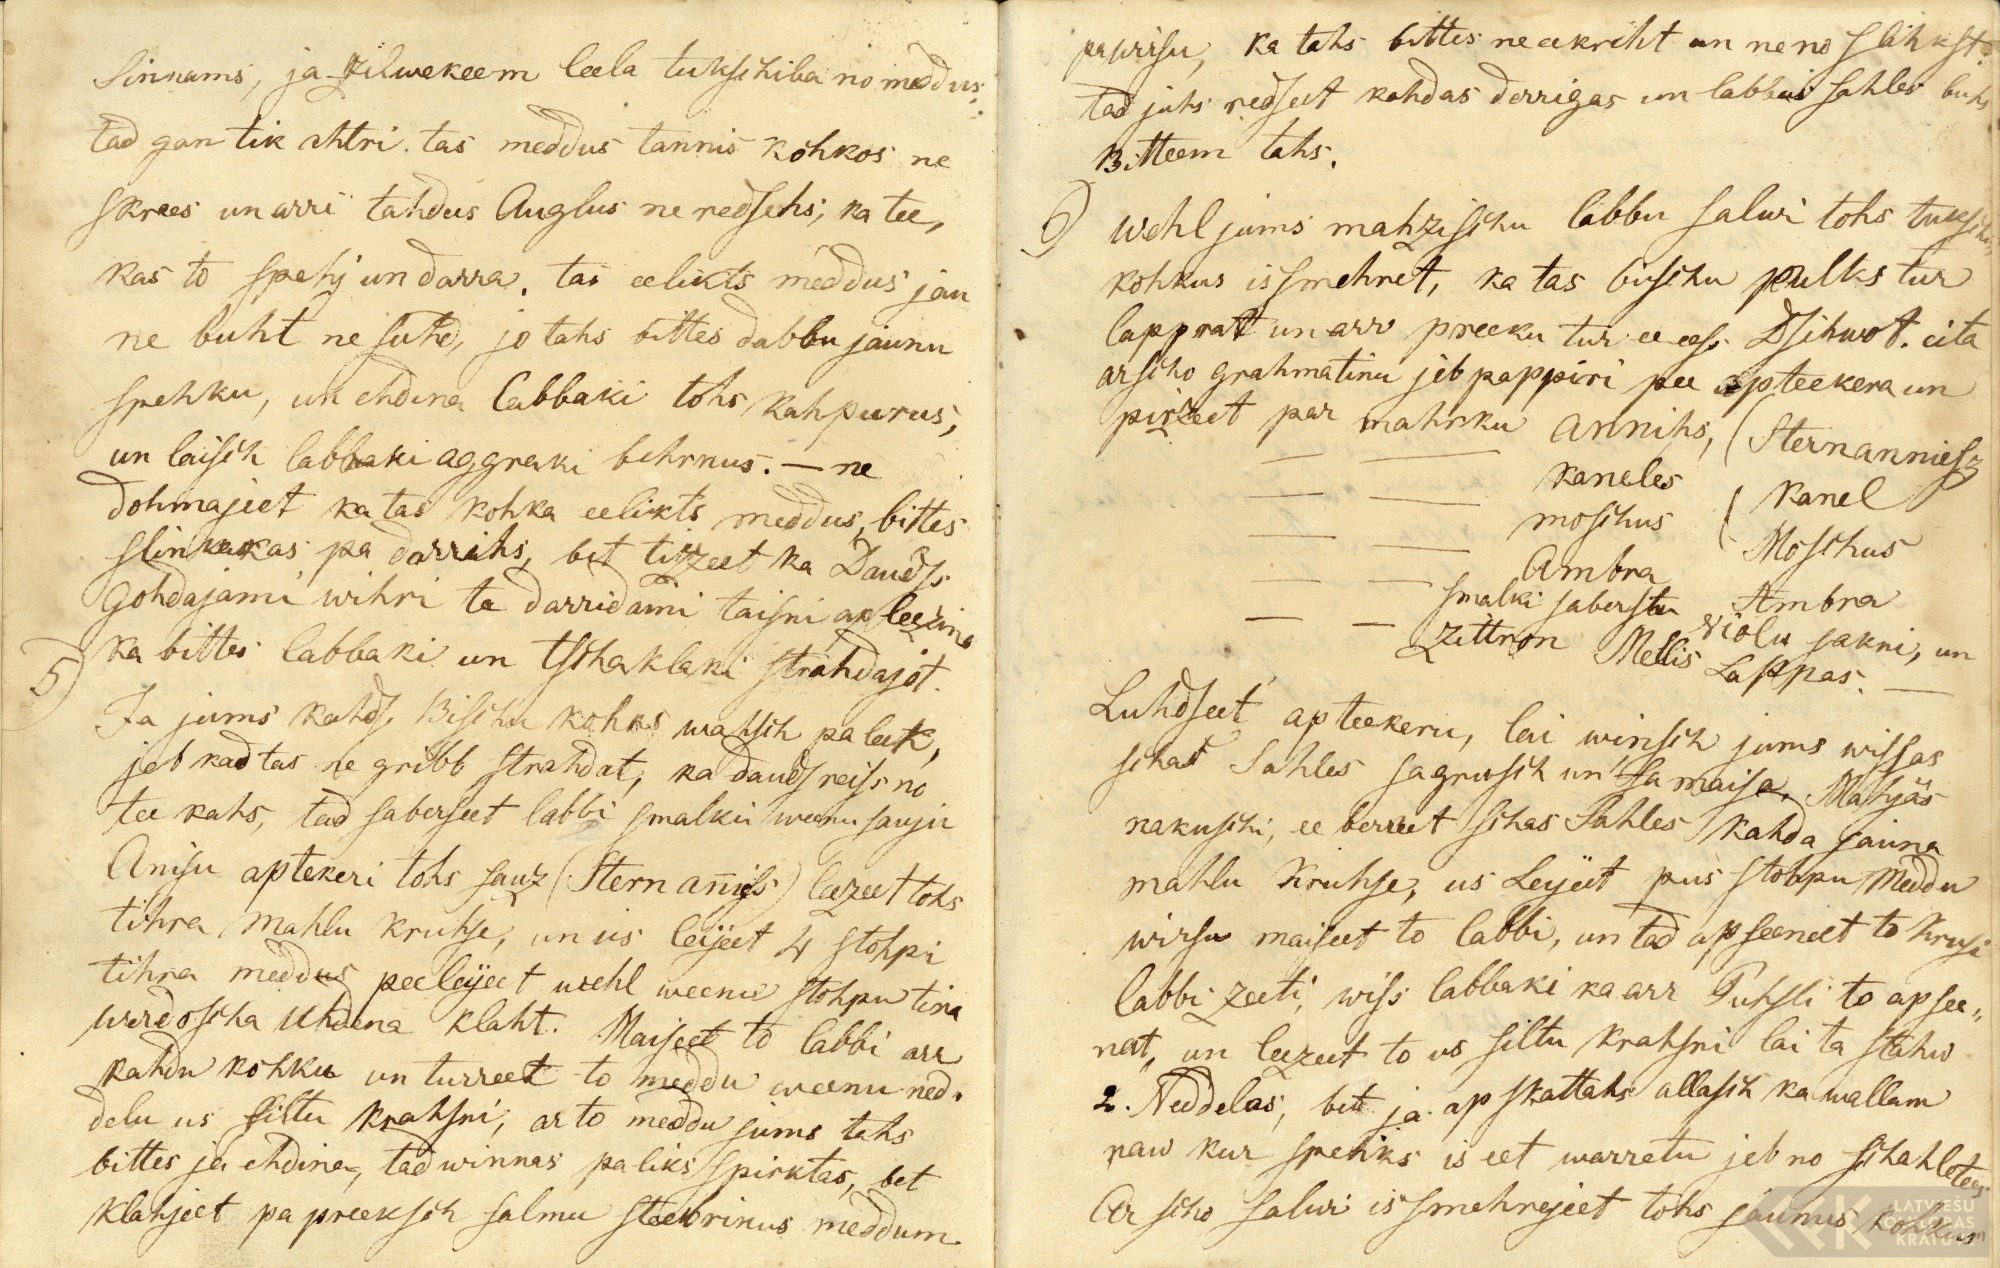 Sinnams, ja Zilwekeem leela tukschiba no meddus,
tad gan tik ahtri tas meddus tannis kohkos ne
skrees un arri tahdus Auglus ne redsehs, ka tee,
kas to spehj un darra. tas eelikts meddus jau
ne buht ne suhd, jo tahs bittes dabbu jaunu
spehku, un ehdina labbaki tohs kahpurus,
un laisch labbaki aggraki behrnus. — ne
dohmajeet ka tas kohka eelikts meddus, bittes
slinkakas pa darrihs, bet tizzeet ka Daudfs
gohdajami wihri ta darridami taisni apleezina
ka bittes labbaki un tschaklaki strahdajot.
5) Ja jums kahds Bischu kohks wahsch paleek,
jeb kad tas ne gribb strahdat, ka daudsreis no
tee kahs, tad saberseet labbi smalki weenu sauju
Anisu aptekeri tohs sauz (Stern anies) leezeet tohs
tihra mahlu kruhse, un us leijeet 4 stohpi
tihra meddus peeleijeet wehl weenu stohpu tira
werdoscha uhdena klaht. Maiseet to labbi arr
kahdu kohku un turreet to meddu weenu ned.
delu us siltu krahsni, ar to meddu jums tahs
bittes ja ehdina, tad winnas paliks spirktas, bet
klahjeet pa preeksch salmu steebrinus meddum
pa wirsu, ka tahs bittes ne eekriht un ne no slihkst.
tad juhs redseet kahdas derrigas un labbas sahles buhs
Bitteem tahs.
6) Wehl jums mahzischu labbu salwi tohs tukschus
kohkus issmehret, ka tas bischu pulks tur
lapprat un arr preeku tur ee eefs. Dsihwot. eita
ar scho grahmatinu jeb pappiri pee apteekera un
pirzeet par mahrku annihs, (Sternanniesz
— — kaneles ( Kanel
— — moschus ( Moschus
— — Ambra Ambra
— — smalki saberstu violu sakni, un
Zittron Mellis Lappas. —
Luhdseet apteekeru, lai winsch jums wissas
schas Sahles sagrusch un Samaisa. Mahjäs
nakuschi, ee berreet schas Sahles kahda jauna
mahlu Kruhse, us Leijeet pus stohpu Meddu
wirsu maiseet to labbi, un tad apseeneet to Krusi
labbi zeeti, wiss labbaki ka arr Puhsli to apsee„
neet, un leezeet to us siltu krahsni lai ta stahw
2. Neddelas, bet ja apskattahs allasch ka wallam
naw kur spehks is eet warretu jeb no schahlotees
Ar scho salwi issmehrejeet tohs jaunus kohkus
LATVIEŠU
FOLKLORAS
KRĀTUVE